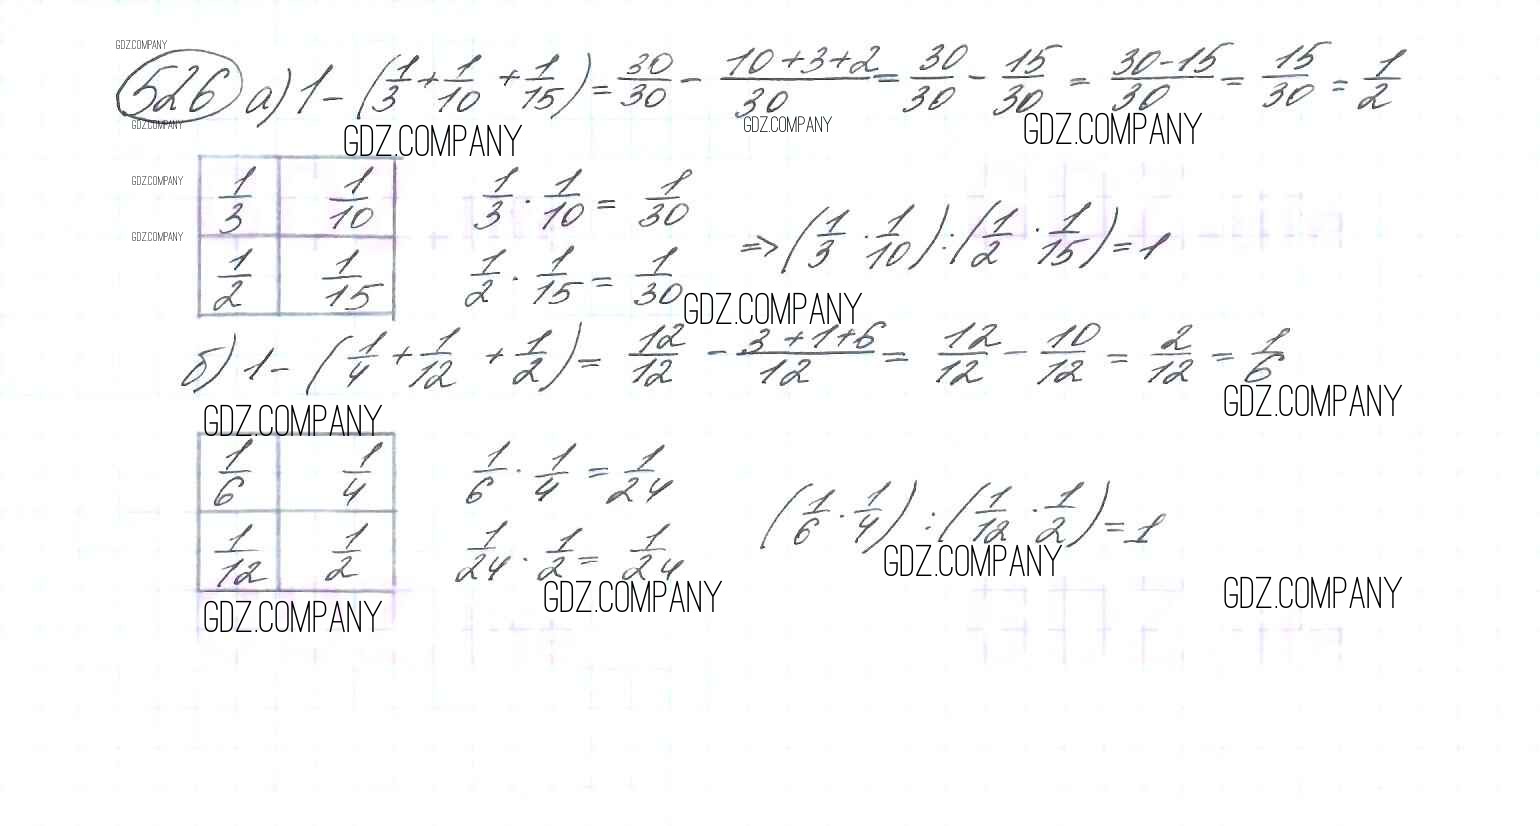 GDZ.COMPANY
526 а) 1 - (1/3 + 1/10 + 1/15) = 30/30 - (10+3+2)/30 = 30/30 - 15/30 = (30-15)/30 = 15/30 = 1/2
GDZ.COMPANY GDZ.COMPANY GDZ.COMPANY GDZ.COMPANY
GDZ.COMPANY
1/3 1/10 1/3 · 1/10 = 1/30
GDZ.COMPANY
=> (1/3 · 1/10) : (1/2 · 1/15) = 1
1/2 1/15 1/2 · 1/15 = 1/30
GDZ.COMPANY
б) 1 - (1/4 + 1/12 + 1/2) = 12/12 - (3+1+6)/12 = 12/12 - 10/12 = 2/12 = 1/6
GDZ.COMPANY GDZ.COMPANY
1/6 1/4 1/6 · 1/4 = 1/24
(1/6 · 1/4) : (1/12 · 1/2) = 1
1/12 1/2 1/24 · 1/2 = 1/24
GDZ.COMPANY
GDZ.COMPANY GDZ.COMPANY GDZ.COMPANY